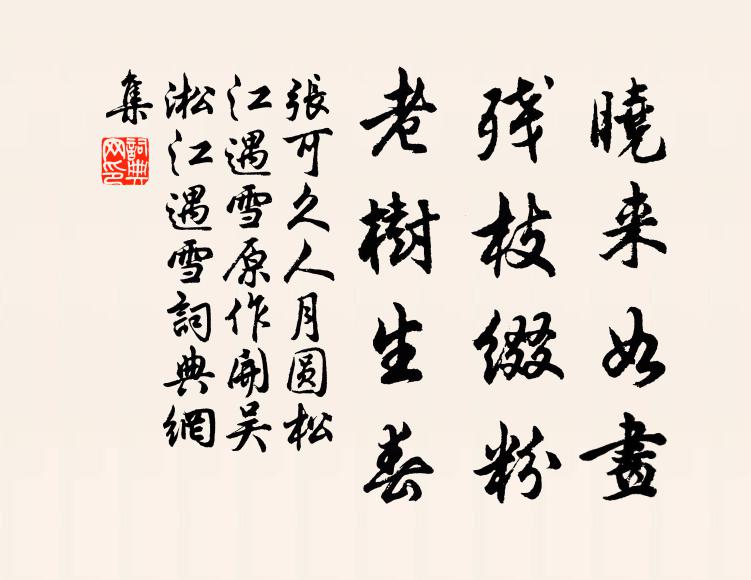 曉来如畫
残枝綴粉
老樹生春
張可久人月圆松
江遇雪原作開吴
淞江遇雪詞典網
集
詞典网印